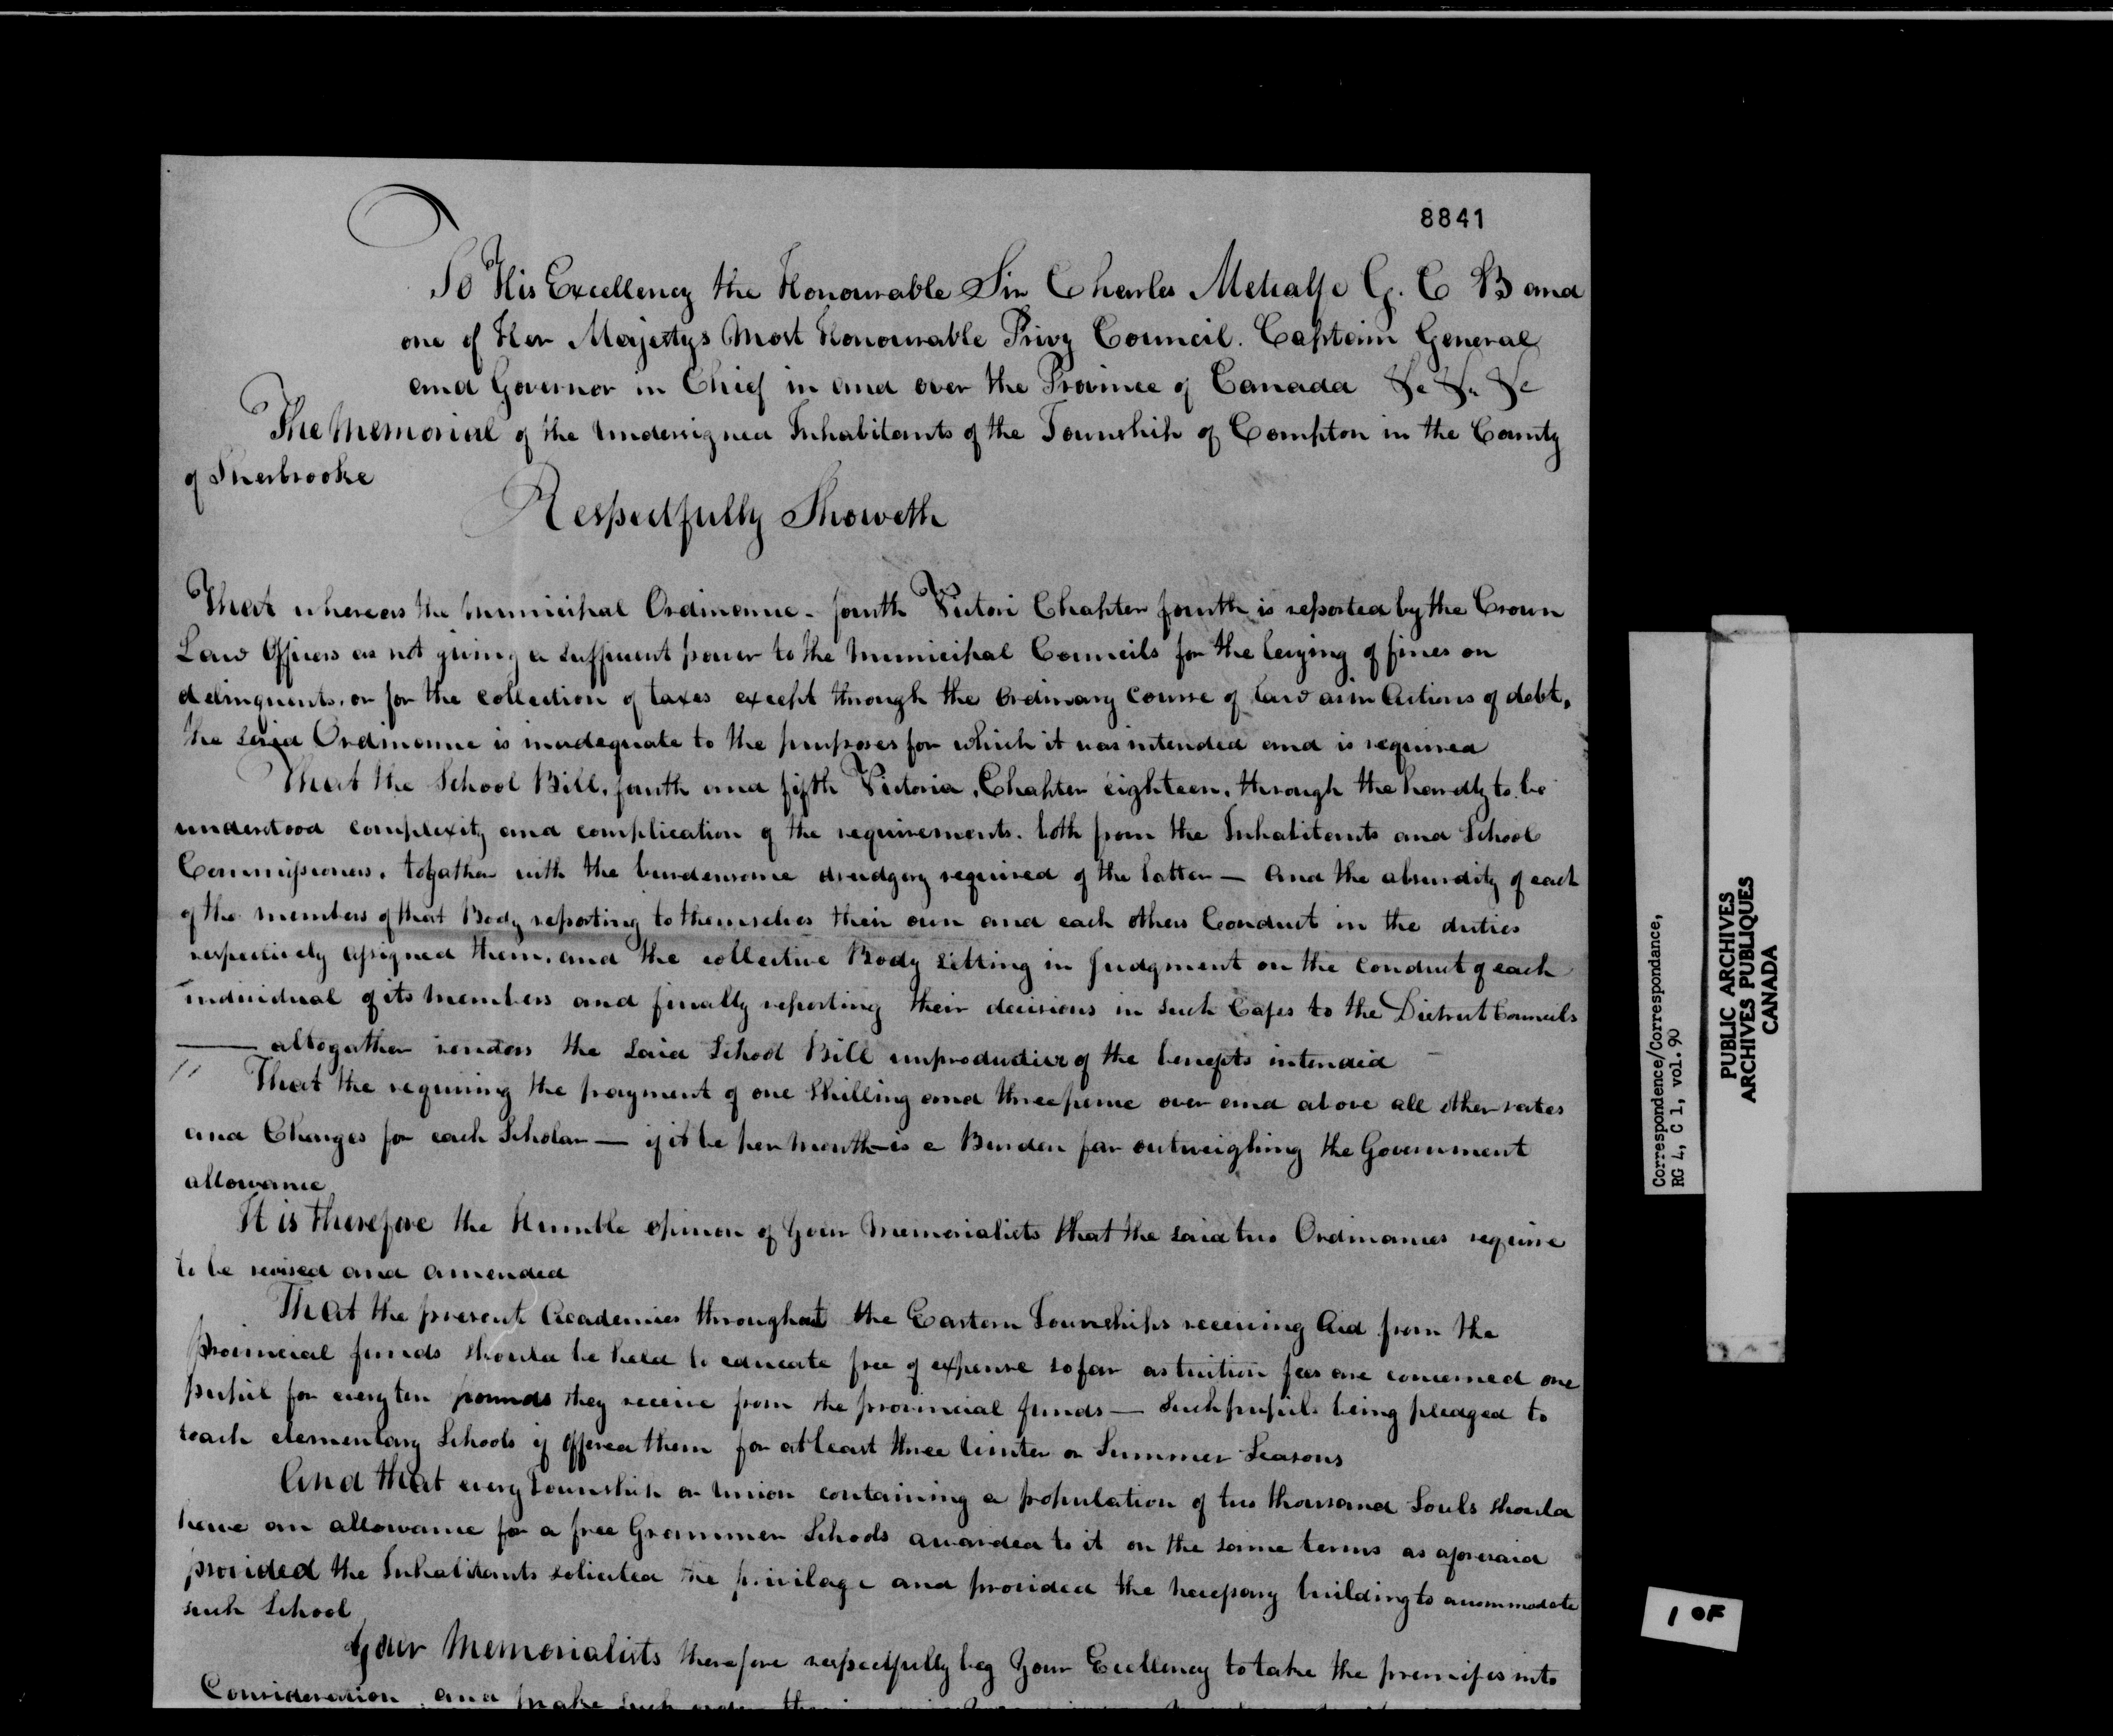 8841
To His Excellency the Honourable Sir Charles Metcalfe G. C B and
one of Her Majestys Most Honourable Privy Council. Captain General
and Governor in Chief in and over the Province of Canada &c &c &c
The Memorial of the Undersigned Inhabitants of the Township of Compton in the County
of Sherbrooke
Respectfully Showeth
That whereas the Municipal Ordinance - fourth Victori Chapter fourth is reported by the Crown
Law Officers as not giving a sufficient power to the Municipal Councils for the levying of fines on
delinquents. or for the collection of taxes except through the ordinary course of Law as in Actions of debt,
the said Ordinance is inadequate to the purposes for which it was intended and is required
That the School Bill, fourth and fifth Victoria, Chapter eighteen, through the hardly to be
understood complexity and complication of the requirements. both from the Inhabitants and School
Commissioners, togather with the burdensome drudgery required of the latter — And the absurdity of each
of the members of that Body reporting to themselves their own and each others Conduct in the duties
respectively assigned them, and the collective Body sitting in Judgment on the conduct of each
individual of its members and finally reporting their decisions in such Cases to the District Councils
— altogather renders the said School Bill unproductive of the benefits intended
That the requiring the payment of one Shilling and threepence over and above all other rates
and Charges for each Scholar — if it be per month — is a Burden far outweighing the Government
allowance
It is therefore the Humble opinion of Your Memorialists that the said two Ordinances require
to be revised and amended
That the present Academies throughout the Eastern Townships receiving Aid from the
provincial funds should be held to educate free of expense so far as tuition fees are concerned one
pupil for every ten pounds they receive from the provincial funds — Such pupils being pledged to
teach elementary Schools if offered them for at least three Winter or Summer Seasons
And that every Township or Union containing a population of two thousand Souls should
have an allowance for a free Grammer Schools awarded to it on the same terms as aforesaid
provided the Inhabitants solicited the privilage and provided the necessary building to accommodate
such School
Your Memorialists therefore respectfully beg Your Excellency to take the premises into
Consideration, and make such order
Correspondence/Correspondance,
RG 4, C 1, vol. 90
PUBLIC ARCHIVES
ARCHIVES PUBLIQUES
CANADA
1 OF